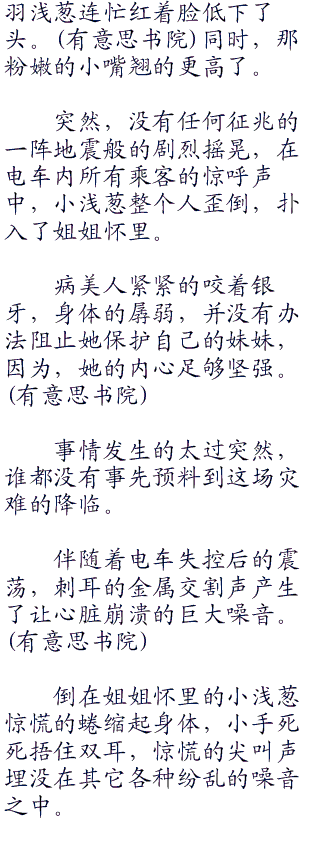 羽浅葱连忙红着脸低下了
头。(有意思书院)同时，那
粉嫩的小嘴翘的更高了。
突然，没有任何征兆的
一阵地震般的剧烈摇晃，在
电车内所有乘客的惊呼声
中，小浅葱整个人歪倒，扑
入了姐姐怀里。
病美人紧紧的咬着银
牙，身体的孱弱，并没有办
法阻止她保护自己的妹妹，
因为，她的内心足够坚强。
(有意思书院)
事情发生的太过突然，
谁都没有事先预料到这场灾
难的降临。
伴随着电车失控后的震
荡，刺耳的金属交割声产生
了让心脏崩溃的巨大噪音。
(有意思书院)
倒在姐姐怀里的小浅葱
惊慌的蜷缩起身体，小手死
死捂住双耳，惊慌的尖叫声
埋没在其它各种纷乱的噪音
之中。